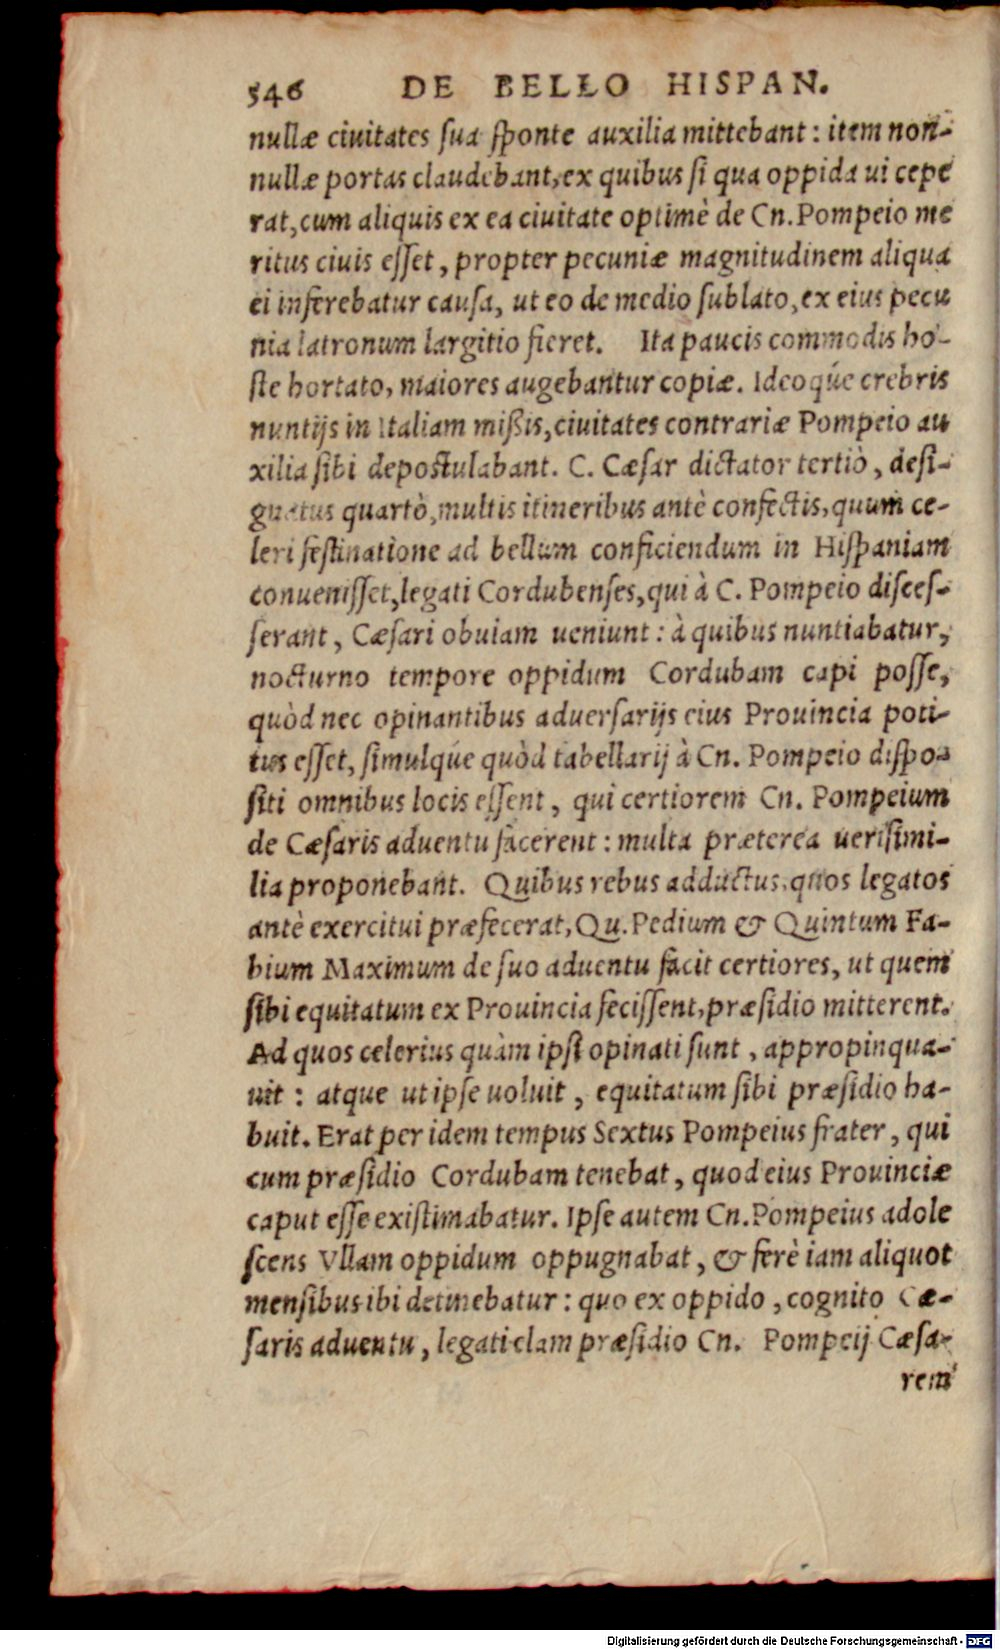 546 DE BELLO HISPAN.
nullæ ciuitates sua sponte auxilia mittebant: item non-
nullæ portas claudebant, ex quibus si qua oppida ui cepe
rat, cum aliquis ex ea ciuitate optimè de Cn. Pompeio me
ritus ciuis esset, propter pecuniæ magnitudinem aliqua
ei inferebatur causa, ut eo de medio sublato, ex eius pecu
nia latronum largitio fieret. Ita paucis commodis ho-
ste hortato, maiores augebantur copiæ. Ideoq́ue crebris
nuntijs in Italiam mißis, ciuitates contrariæ Pompeio au
xilia sibi depostulabant. C. Cæsar dictator tertiò, desi-
gnatus quartò, multis itineribus antè confectis, quum ce-
leri festinatione ad bellum conficiendum in Hispaniam
conuenisset, legati Cordubenses, qui à C. Pompeio disces-
serant, Cæsari obuiam ueniunt: à quibus nuntiabatur,
nocturno tempore oppidum Cordubam capi posse,
quòd nec opinantibus aduersarijs eius Prouincia poti-
tus esset, simulq́ue quòd tabellarij à Cn. Pompeio dispo-
siti omnibus locis essent, qui certiorem Cn. Pompeium
de Cæsaris aduentu facerent: multa præterea uerisimi-
lia proponebant. Quibus rebus adductus, quos legatos
antè exercitui præfecerat, Qu. Pedium & Quintum Fa-
bium Maximum de suo aduentu facit certiores, ut quem
sibi equitatum ex Prouincia fecissent, præsidio mitterent.
Ad quos celerius quàm ipsi opinati sunt, appropinqua-
uit: atque ut ipse uoluit, equitatum sibi præsidio ha-
buit. Erat per idem tempus Sextus Pompeius frater, qui
cum præsidio Cordubam tenebat, quod eius Prouinciæ
caput esse existimabatur. Ipse autem Cn. Pompeius adole
scens Vllam oppidum oppugnabat, & ferè iam aliquot
mensibus ibi detinebatur: quo ex oppido, cognito Cæ-
saris aduentu, legati clam præsidio Cn. Pompeij Cæsa-
rem
Digitalisierung gefördert durch die Deutsche Forschungsgemeinschaft - DFG